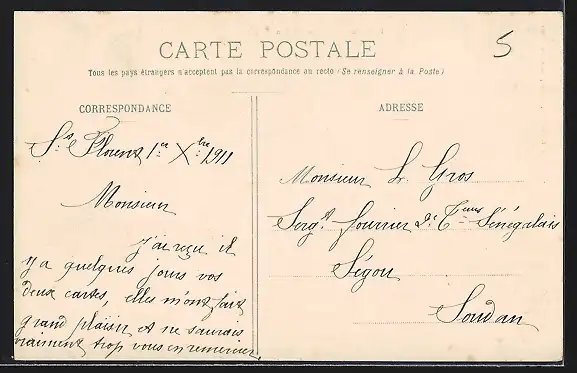 CARTE POSTALE
5
Tous les pays étrangers n'acceptent pas la correspondance au recto (Se renseigner à la Poste)
CORRESPONDANCE
ADRESSE
St Florent 1er Xbre 1911
Monsieur
j'ai reçu il
y a quelques jours vos
deux cartes, elles m'ont fait
grand plaisir et ne saurais
vraiment trop vous en remercier,
Monsieur Gros
Sergt fourrier 2e Sénégalais
Ségou
Soudan